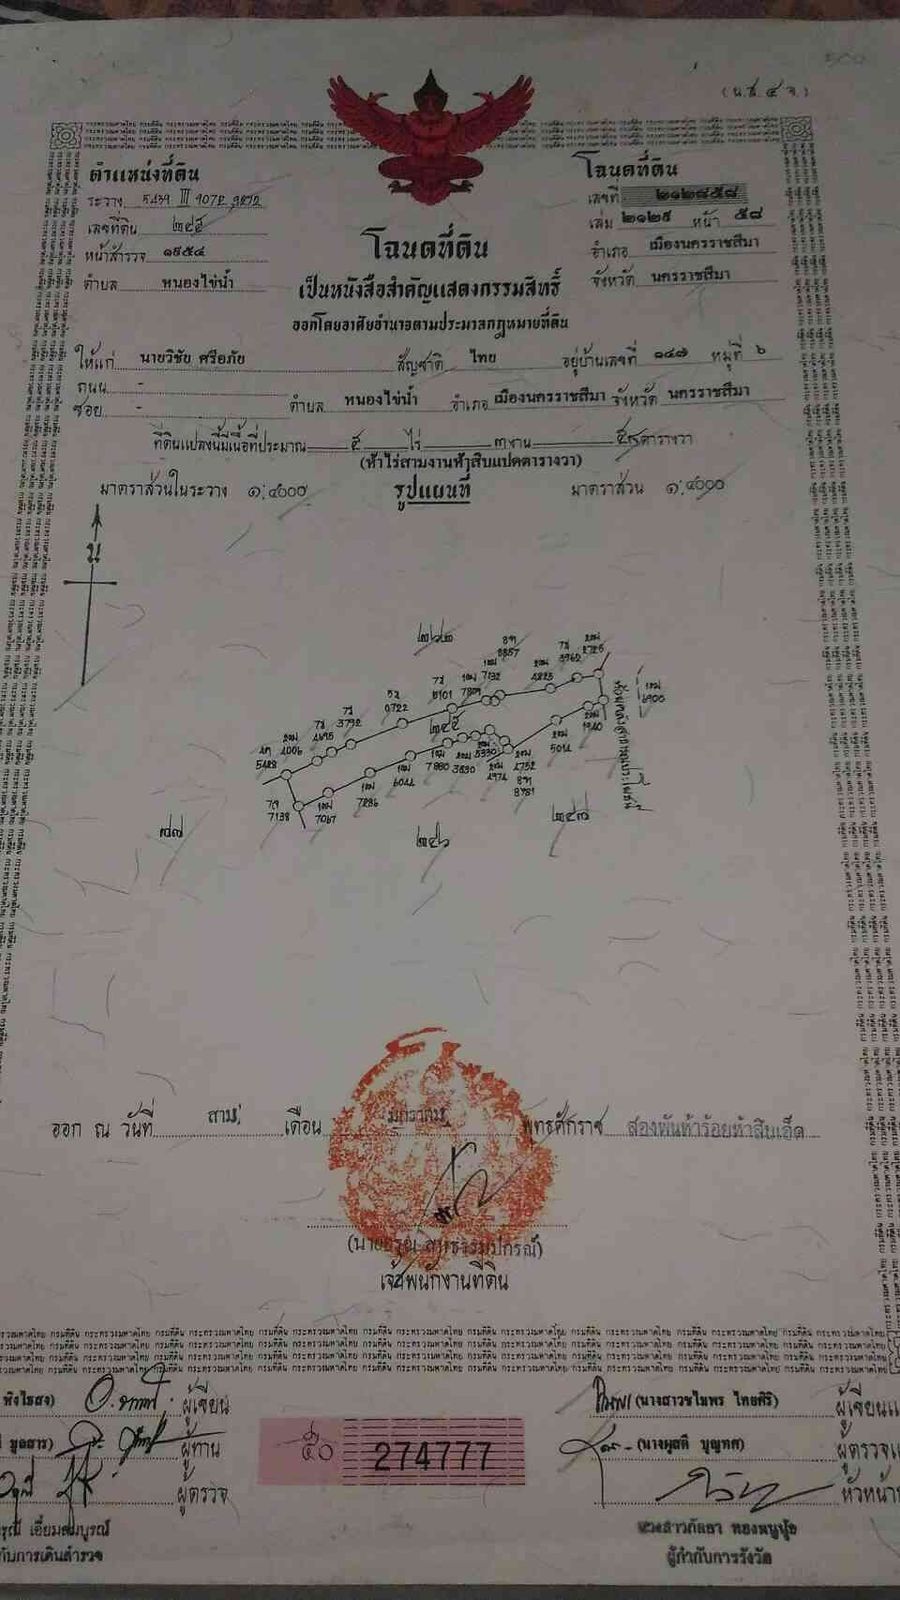 (น.ส. ๔ จ.)
ตำแหน่งที่ดิน
โฉนดที่ดิน
ระวาง 5439 III
เลขที่ ๒๑๒๘๕๘
เลขที่ดิน ๒๔๕
เล่ม ๒๑๒๙ หน้า ๕๘
หน้าสำรวจ ๑๙๕๔
โฉนดที่ดิน
อำเภอ เมืองนครราชสีมา
ตำบล หนองไข่น้ำ
เป็นหนังสือสำคัญแสดงกรรมสิทธิ์
จังหวัด นครราชสีมา
ออกโดยอาศัยอำนาจตามประมวลกฎหมายที่ดิน
ให้แก่ นายวิชัย ศรีอภัย สัญชาติ ไทย อยู่บ้านเลขที่ ๑๔๗ หมู่ที่ ๖
ถนน -
ซอย - ตำบล หนองไข่น้ำ อำเภอ เมืองนครราชสีมา จังหวัด นครราชสีมา
ที่ดินแปลงนี้มีเนื้อที่ประมาณ ๕ ไร่ ๓ งาน ๕๘ ตารางวา
(ห้าไร่สามงานห้าสิบแปดตารางวา)
มาตราส่วนในระวาง ๑:๔๐๐๐ รูปแผนที่ มาตราส่วน ๑:๔๐๐๐
น
8857
2725
7132
3962
5101
4225
0722
3792
๒๔๕
1905
4695
4006
5428
1940
5014
5330
7880
3830
4752
6044
4974
8781
7286
7138
7067
๗๗
๒๔๖
๒๔๗
ออก ณ วันที่ สาม เดือน มกราคม พุทธศักราช สองพันห้าร้อยห้าสิบเอ็ด
เจ้าพนักงานที่ดิน
ผู้เขียน
(นางสาวชไมพร ไทยศิริ)
ผู้ทาน
๕๐
274777
(นางผุสดี บุญทศ)
ผู้ตรวจ
เอี่ยมสมบูรณ์
ผู้กำกับการรังวัด